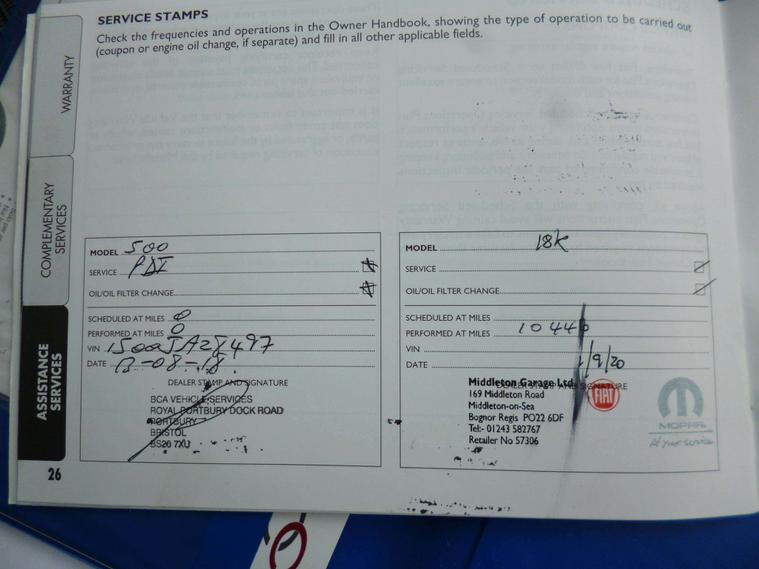 SERVICE STAMPS
Check the frequencies and operations in the Owner Handbook, showing the type of operation to be carried out
(coupon or engine oil change, if separate) and fill in all other applicable fields.
WARRANTY
COMPLEMENTARY
SERVICES
ASSISTANCE
SERVICES
MODEL 500
SERVICE PDI
OIL/OIL FILTER CHANGE
SCHEDULED AT MILES 0
PERFORMED AT MILES 0
VIN
DATE
DEALER STAMP AND SIGNATURE
BCA VEHICLE SERVICES
ROYAL PORTBURY DOCK ROAD
PORTBURY
BRISTOL
BS20 7XU
MODEL 18K
SERVICE
OIL/OIL FILTER CHANGE
SCHEDULED AT MILES
PERFORMED AT MILES
VIN
DATE 1/9/20
DEALER STAMP AND SIGNATURE
Middleton Garage Ltd
169 Middleton Road
Middleton-on-Sea
Bognor Regis PO22 6DF
Tel:- 01243 582767
Retailer No 57306
FIAT
MOPAR
At your service
26